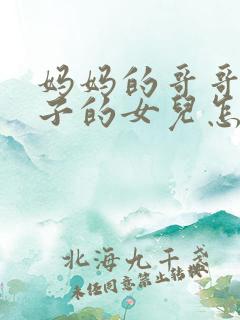 妈妈的哥哥
子的女兒怎
北海九千盏
未经同意禁止转推